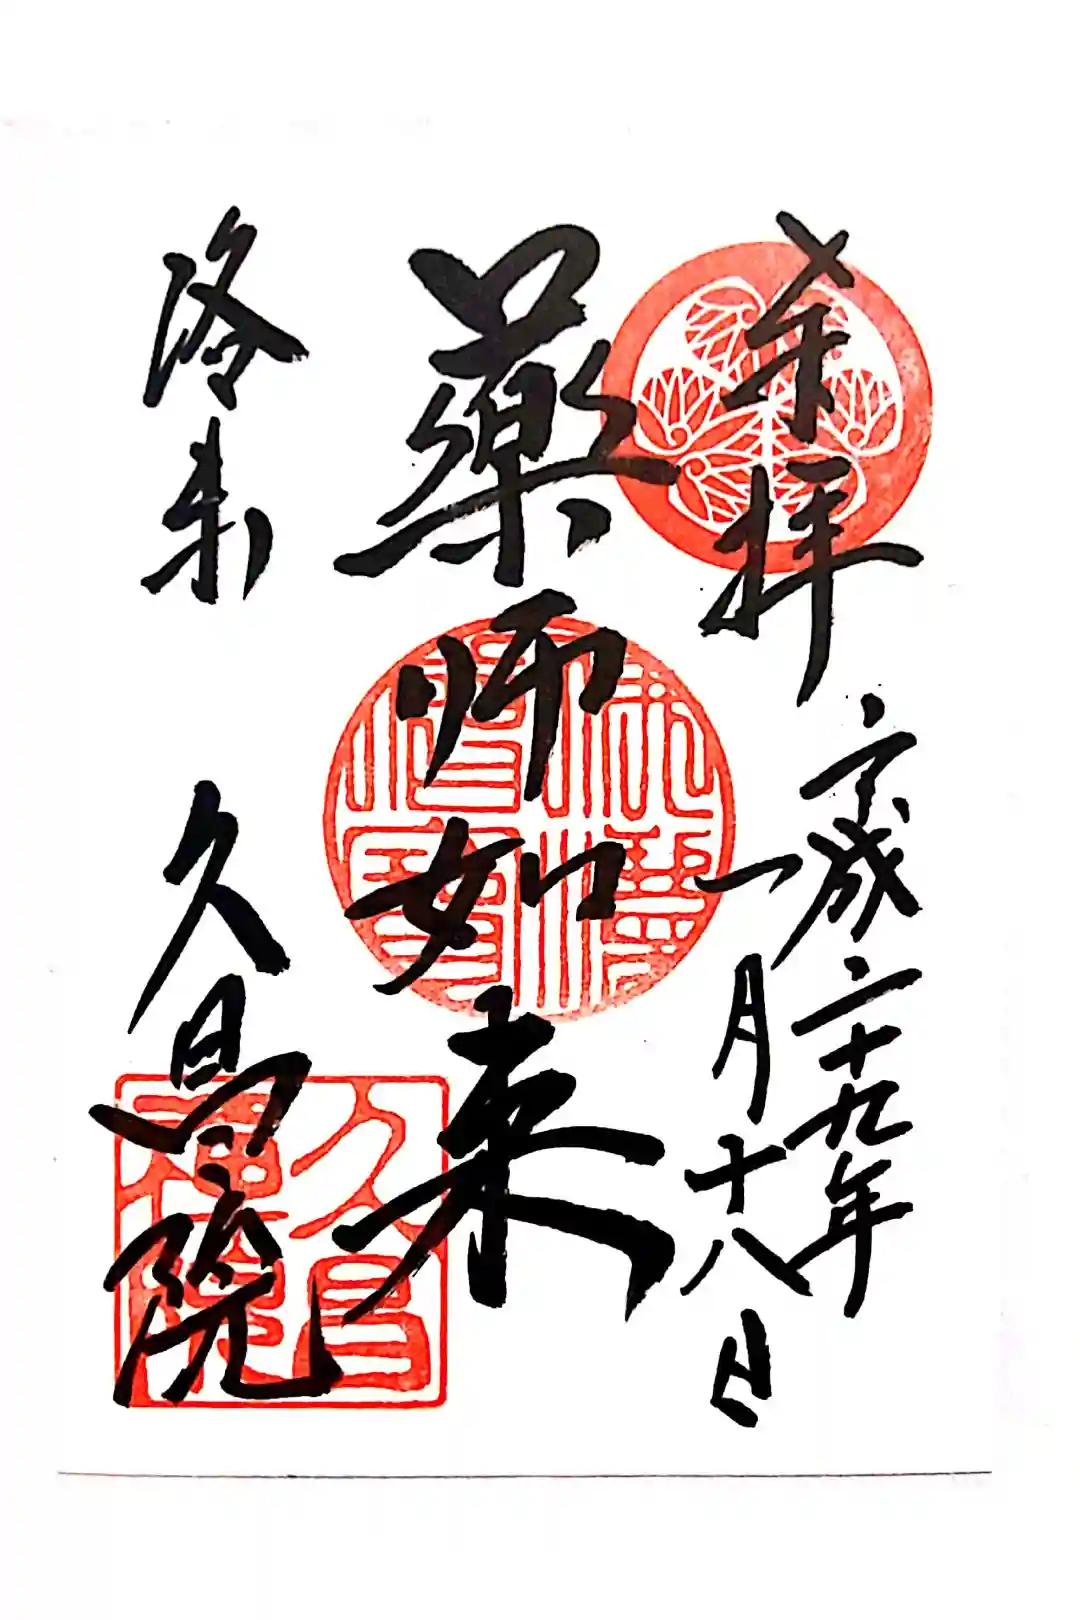 奉拝
平成二十九年
一月十八日
藥師如来
洛東
久昌院
佛法
僧寶
久昌
禪院